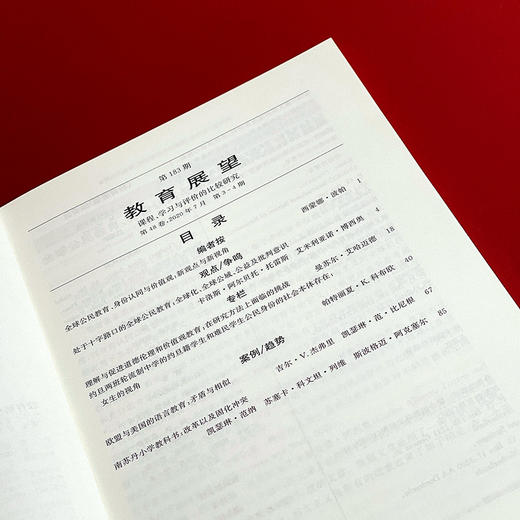 第 183 期
教育展望
课程、学习与评价的比较研究
第 48 卷, 2020 年 7 月 第 3－4 期
目 录
编者按
全球公民教育、身份认同与价值观:新观点与新视角 西蒙娜·波帕 1
观点/争鸣
处于十字路口的全球公民教育:全球化、全球公域、公益及批判意识
卡洛斯·阿尔贝托·托雷斯 艾米利亚诺·博西奥 4
专栏
理解与促进道德伦理和价值观教育:在研究方法上面临的挑战 曼苏尔·艾哈迈德 18
约旦两班轮流制中学的约旦籍学生和难民学生公民身份的社会本体存在:
女生的视角 帕特丽夏·K. 科布欧 40
案例/趋势
欧盟与美国的语言教育:矛盾与相似 吉尔·V. 杰弗里 凯瑟琳·范·比尼根 67
南苏丹小学教科书:改革以及固化冲突
凯瑟琳·范纳 苏塞卡·科文坦·列维 斯波格迈·阿克塞尔 85